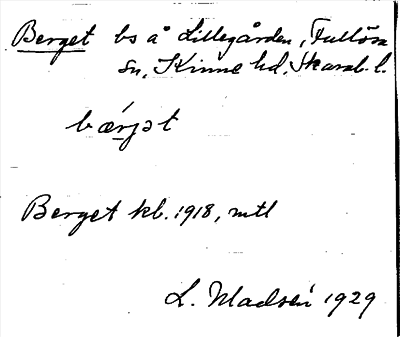 Berget bs å Lillegården, Fullösa
sn, Kinne hd, Skarab. l.
bǽrjət
Berget kb. 1918, mtl
L. Madsén 1929